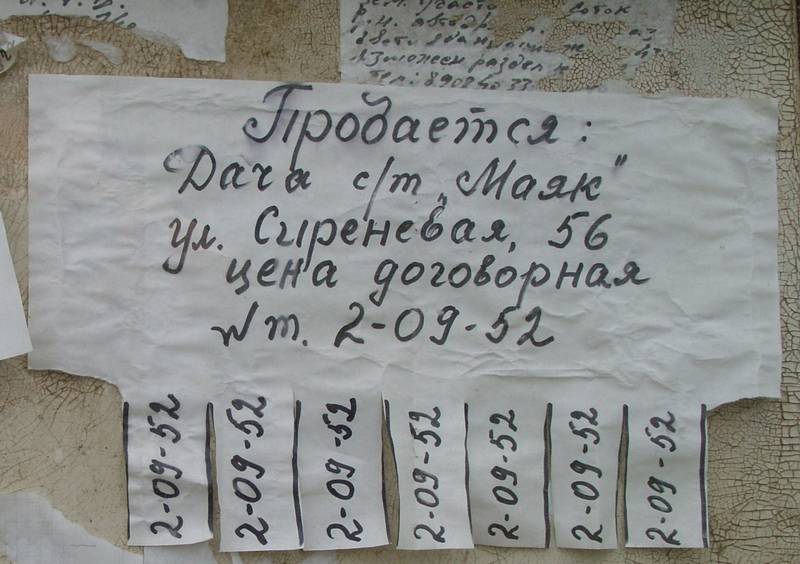 Продается:
Дача с/т „Маяк"
ул. Сиреневая, 56
цена договорная
№ т. 2-09-52
2-09-52
2-09-52
2-09-52
2-09-52
2-09-52
2-09-52
2-09-52